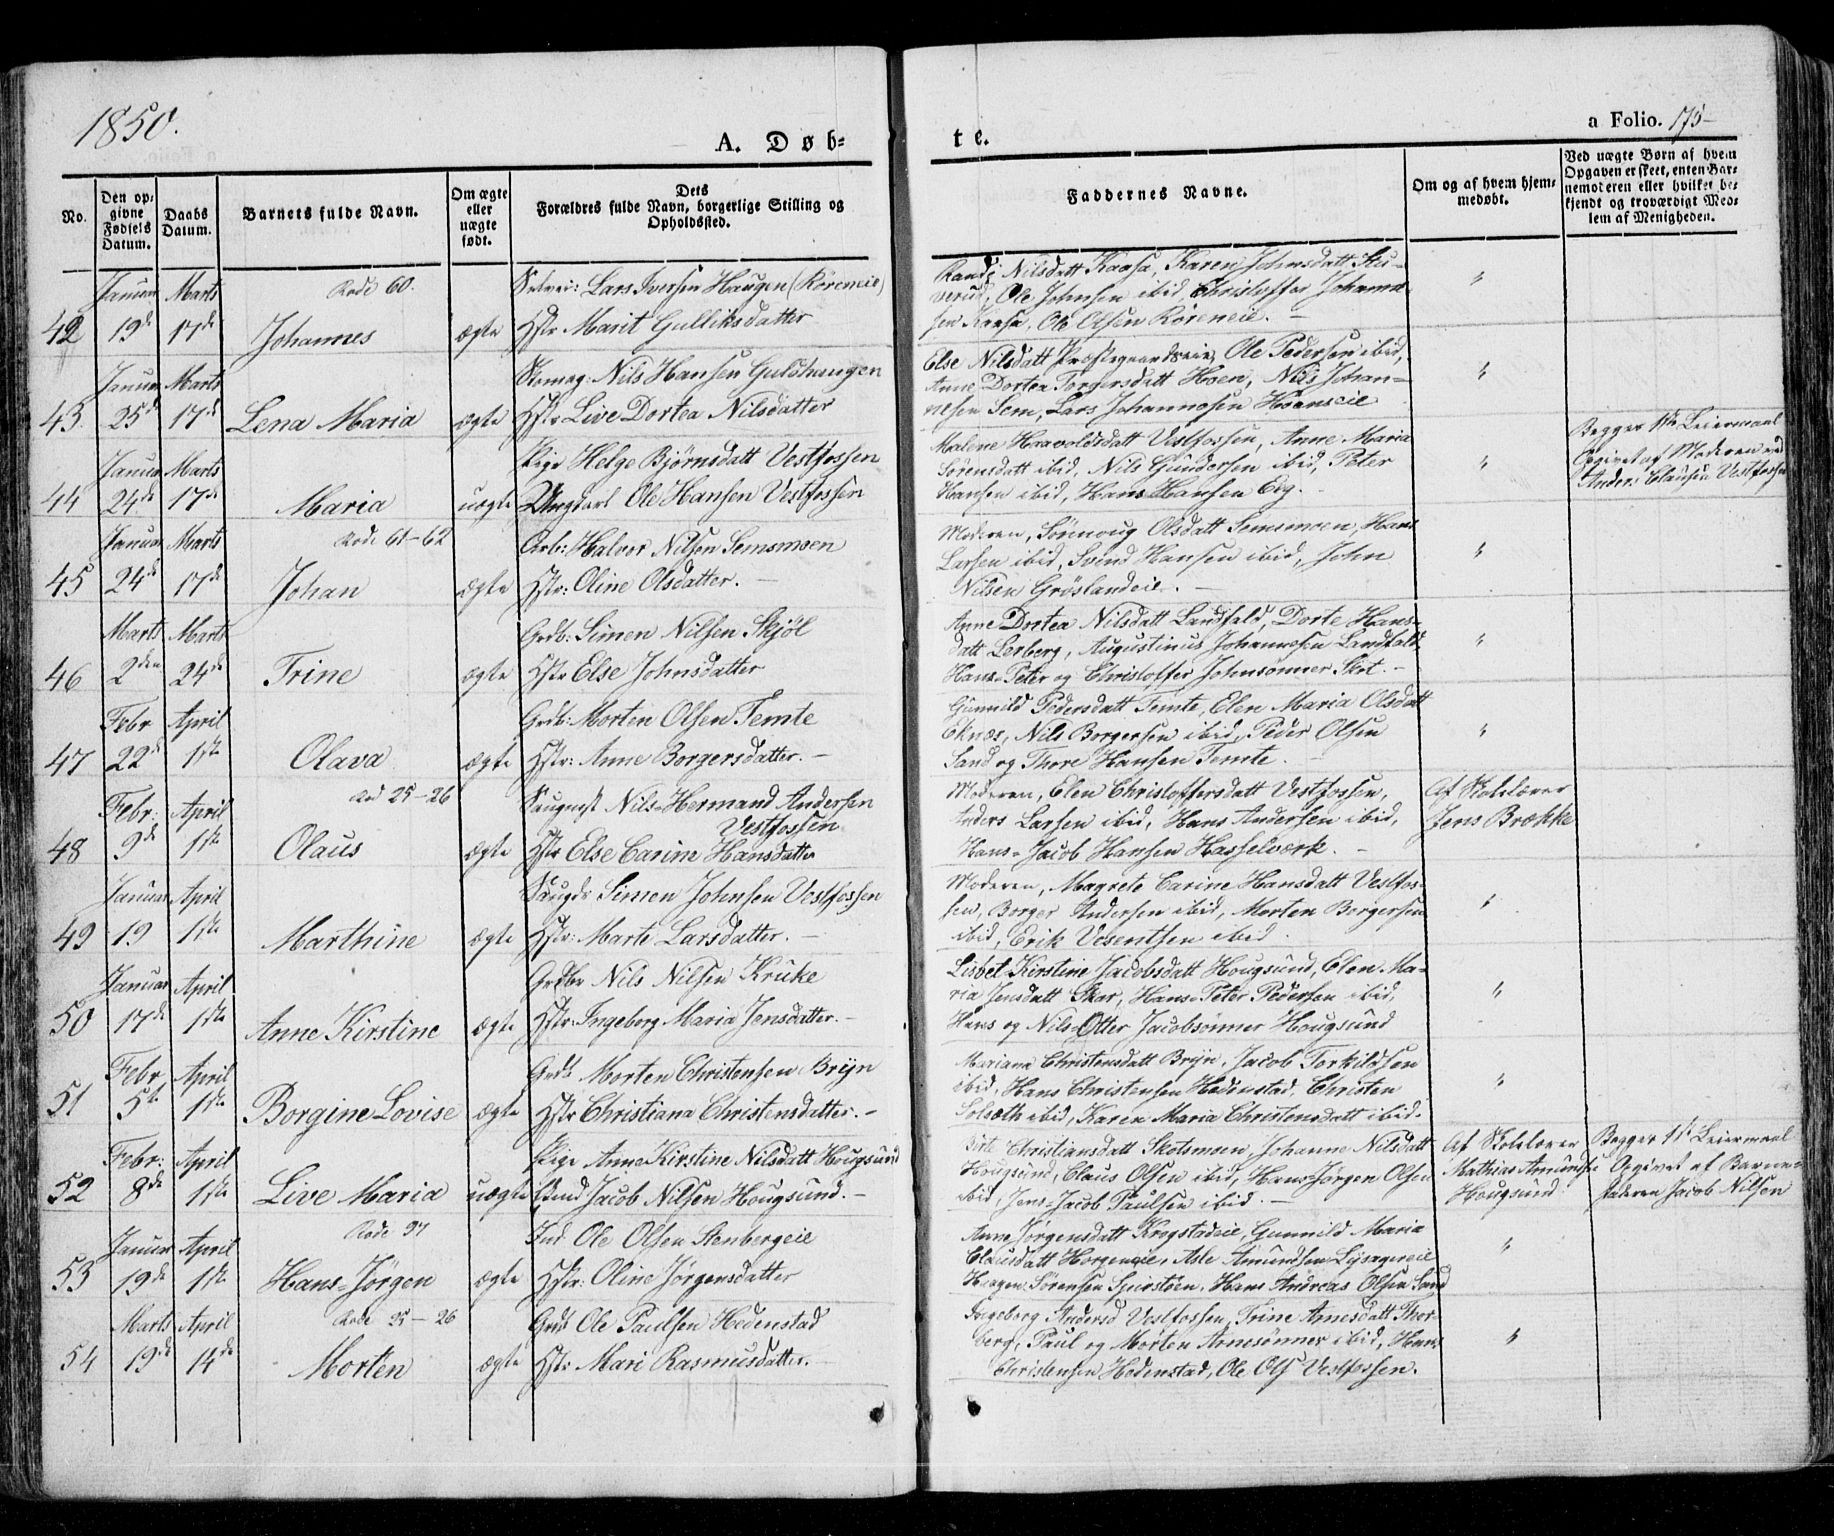 1850.
A. Døb=
te.
a Folio. 175
No.
Den op=
givne
Fødsels
Datum.
Daabs
Datum.
Barnets fulde Navn.
Om ægte
eller
uægte
født.
Dets
Forældres fulde Navn, borgerlige Stilling og
Opholdssted.
Faddernes Navne.
Om og af hvem hjem=
medøbt.
Ved uægte Børn af hvem
Opgaven er skeet, enten Bar=
nemoderen eller hvilket be=
kjendt og troværdigt Med=
lem af Menigheden.
42 Januar 19de Marts 17de Johannes ægte
Lars Iversen Haugen (Røreneie)
Hstr Marit Gulliksdatter
Nilsdatt Kaasa, Karen Johnsdatt
Ole Johnsen ibid, Christoffer Johann=
sen Kaasa, Ole Olsen Røreneie. "
43. Januar 25de Marts 17de Lena Maria ægte
Skomag: Nils Hansen Guldhaugen
Hstr Live Dortea Nilsdatter
Else Nilsdatt Præstegaardseie, Ole Pedersen ibid,
Anne Dortea Torgersdatt Hoen, Nils Johan=
nesen Sem, Lars Johannesen Hoenseie "
44 Januar 24de Marts 17de Maria uægte
Pige Helge Bjørnsdatt Vestfossen
Ungkarl Ole Hansen Vestfossen
Malene Haavoldsdatt Vestfossen, Anne Maria
Sørensdatt ibid, Nils Gundersen ibid, Peter
Hansen ibid, Hans Hansen Eeg. "
Begges 1ste Leiermaal
Opgivet af Moderen ved
Anders Clausen Vestfossen
45 Januar 24de Marts 17de Kode 61-62 Johan ægte
Arb: Halvor Nilsen Semsmoen
Hstr: Oline Olsdatter.
Moderen, Olsdatt Semsmoen, Hans
Larsen ibid, Svend Hansen ibid, John
Nilsen Grøslandeie. "
46 Marts 2den Marts 24de Trine ægte
Grdb: Simen Nilsen Skjøl
Hstr Else Johnsdatter
Anne Dortea Nilsdatt Landfald, Dorte Hans=
datt Lerberg, Augustinus Johannesen Landfald,
Hans Peter og Christoffer Johnsønner Skot. "
47 Febr 22de April 1ste Olava ægte
Grdb: Morten Olsen Temte
Hstr: Anne Borgersdatter.
Gunnild Pedersdatt Temte, Elen Maria Olsdatt
Eknæs, Nils Borgersen ibid, Peder Olsen
Sand og Thore Hansen Temte. "
48 Febr: 9de April 1ste 25-26 Olaus ægte
Saugmst Nils Hermand Andersen
Vestfossen
Hstr Else Carine Hansdatter
Moderen, Elen Christoffersdatt Vestfossen,
Anders Larsen ibid, Hans Andersen ibid,
Hans=Jacob Hansen Hasselværk.
Af Skolelærer
Jens Brække
49 Januar 19 April 1ste Marthine ægte
Saugd: Simen Johnsen Vestfossen
Hstr: Marte Larsdatter.
Moderen, Magrete Carine Hansdatt Vestfos=
sen, Borger Andersen ibid, Morten Borgersen
ibid, Erik Vesentsen ibid. "
50 Januar 17de April 1ste Anne Kirstine ægte
Grdbr Nils Nilsen Kruke
Hstr: Ingeborg Maria Jensdatter.
Lisbet Kirstine Jacobsdatt Hougsund, Elen Ma=
ria Jensdatt Skar, Hans Peter Pedersen ibid,
Hans og Nils Otter Jacobsønner Hougsund "
51 Febr 5te April 1ste Borgine Lovise ægte
Grdb Morten Christensen Bryn
Hstr Christiana Christensdatter.
Mariana Christensdatt Bryn, Jacob Torkildsen
ibid, Hans Christensen Hedenstad, Christen
ibid, Karen Maria Christensdatt ibid. "
52 Febr: 8de April 1ste Live Maria uægte
Pige Anne Kirstine Nilsdatt Hougsund
Jacob Nilsen Hougsund.
Christiansdatt Skotsmoen, Johanne Nilsdatt
Hougsund, Claus Olsen ibid, Hans Jørgen Olsen
ibid, Jens=Jacob Paulsen ibid.
Af Skolelærer
Mathias Amundsen
Hougsund
Begges 1st Leiermaal
Opgivet af Barne=
faderen Jacob Nilsen
53 Januar 19de April 1ste Hans=Jørgen ægte
Ind Ole Olsen Stenbergeie
Hstr: Oline Jørgensdatter
Anne Jørgensdatt Gunnild Maria
Clausdatt Asle Amundsen
Sørensen Hans Andreas Olsen Sand "
54 Marts 19de April 14de Kode 25-26 Morten ægte
Grdb Ole Paulsen Hedenstad
Hstr Mari Rasmusdatter.
Ingeborg Andersd Vestfossen, Trine Arnesdatt Thor=
berg, Paul og Morten Arnesønner ibid, Hans
Christensen Hedenstad, Ole Ols Vestfossen. "